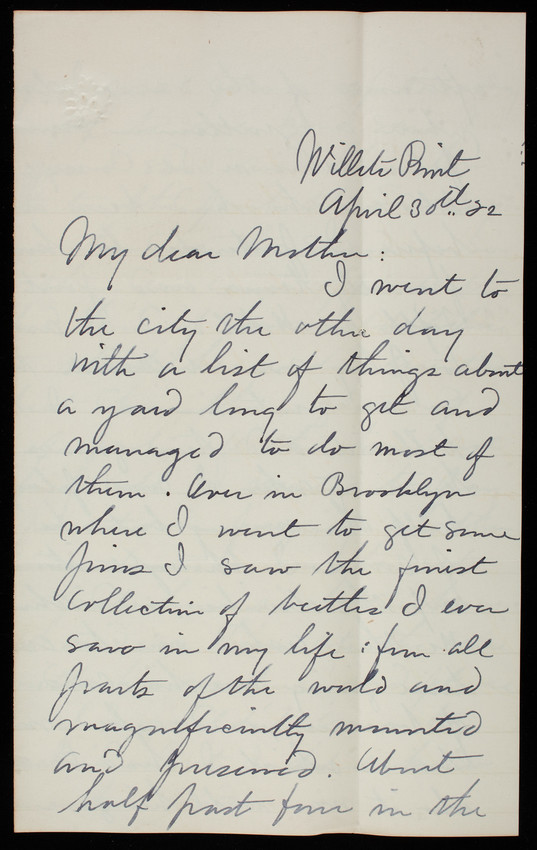 Willets Point
April 30th. 82
My dear Mother:
I went to
the city the other day
with a list of things about
a yard long to get and
managed to do most of
them. Over in Brooklyn
where I went to get some
pins I saw the finest
collection of beetles I ever
saw in my life: from all
parts of the world and
magnificiently mounted
and preserved. About
half past four in the